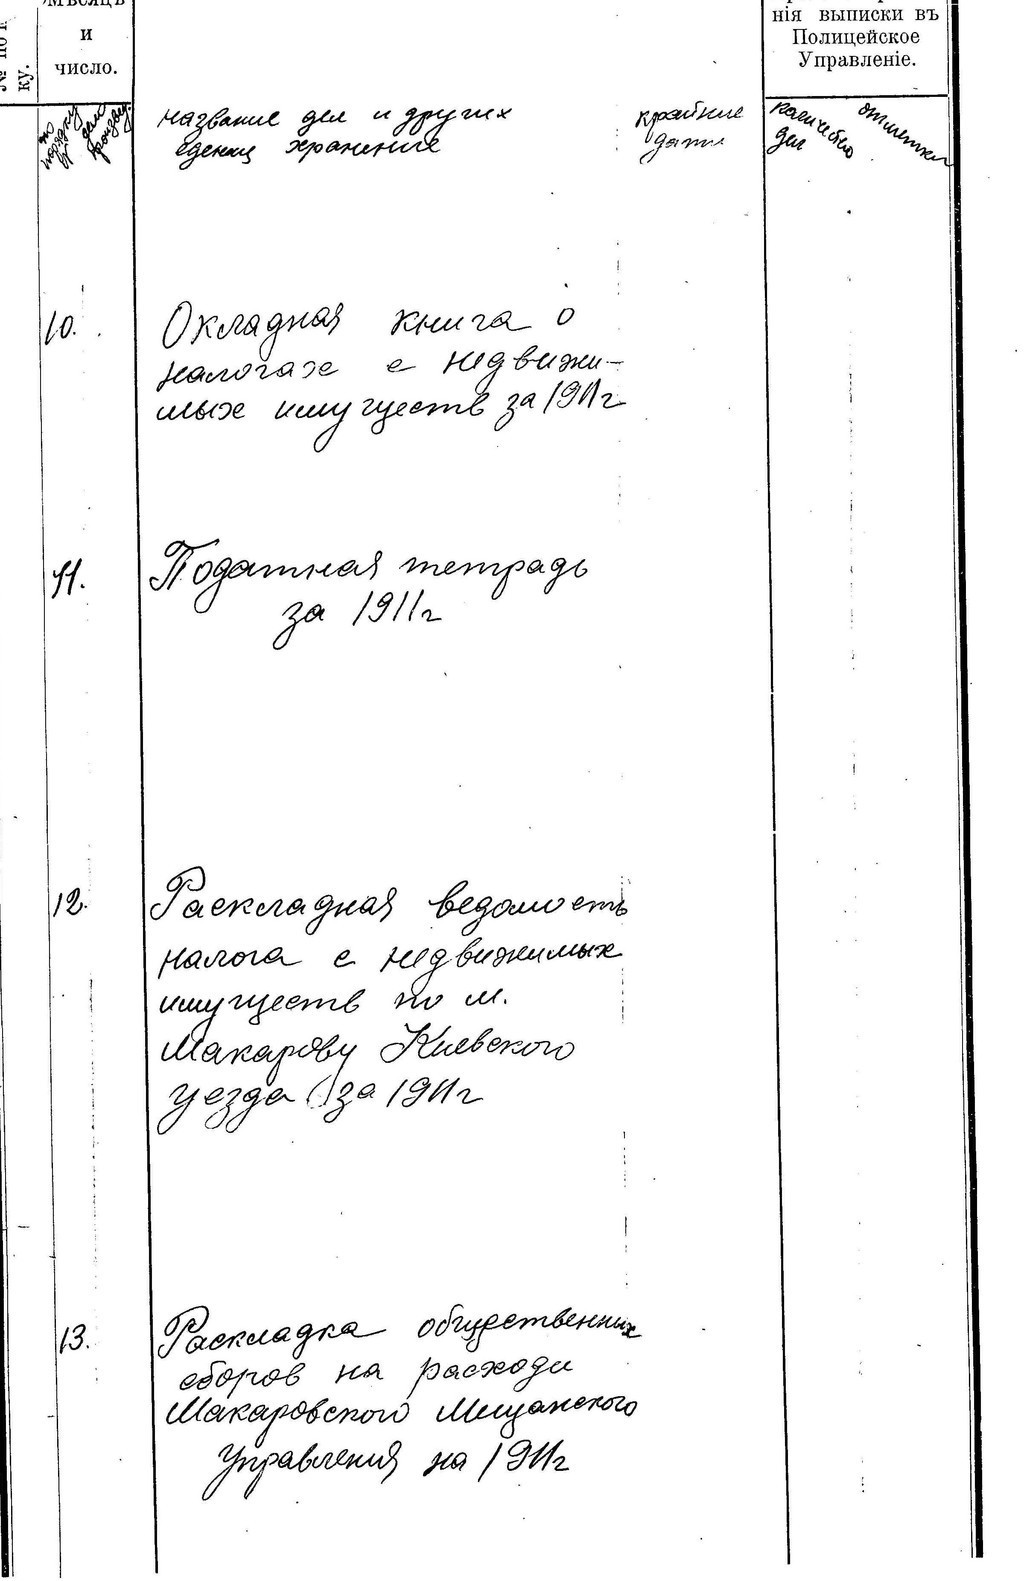 № по п.
ку.
Мѣсяцъ
и
число.
нія выписки въ
Полицейское
Управленіе.
по
порядку
дело
произвед.
название дел и других
едениц хранение
крайние
дати
количество
дел
отметки
10.
Окладная книга о
налогах с недвижи-
мых имуществ за 1911 г
11.
Податная тетрадь
за 1911 г
12.
Раскладная ведомость
налога с недвижимых
имуществ по м.
Макарову Киевского
уезда за 1911 г
13.
Раскладка общественных
сборов на расходи
Макаровского Мещанского
Управления на 1911 г